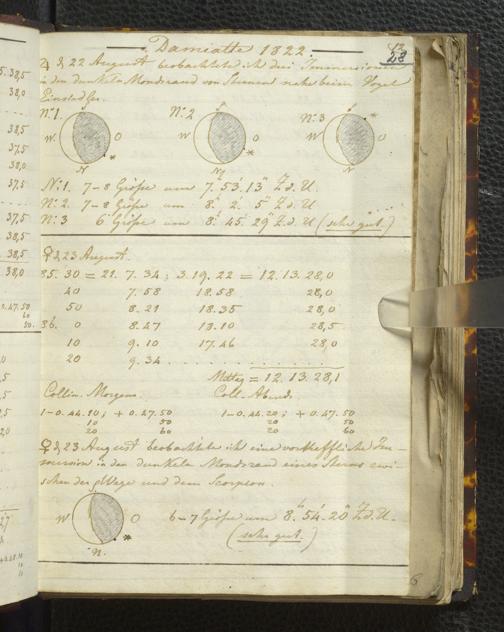 Damiatte 1822
28
♃ d. 22 August beobachtete ich drei Immersionen
in den dunkeln Mondrand von Sternen nahe beim
N:1. N:2 N:3
W. O W. O W O
N N N
N:1. 7-8 Größe um 7h. 53.' 13" Z. d. U.
N:2 7-8 Größe um 8. 2. 5" Z. d. U
N:3 6 Größe um 8. 45. 29" Z. d. U (sehr gut.)
♀ d. 23 August.
85. 30 = 21. 7. 34; 3. 19. 22 = 12. 13. 28,0
40 7. 58 18. 58 28,0
50 8. 21 18. 35 28,0
86. 0 8. 47 18. 10 28,5
10 9. 10 17. 46 28,0
20 9. 34 . . . . . . . .
Mittag = 12. 13. 28,1
Collim. Morgens. Coll. Abend.
1-0. 44. 10; + 0. 47. 50 1-0. 44. 20; + 0. 47. 50
10 50 20 60
20 60 20 60
♀ d. 23 August beobachtete ich eine vortreffliche Im-
mersion in den dunkeln Mondrand eines Sterns zwi-
schen der Wage und dem Scorpion.
W O
N.
6-7 Größe um 8h. 54.' 20" Z. d. U.
(sehr gut.)